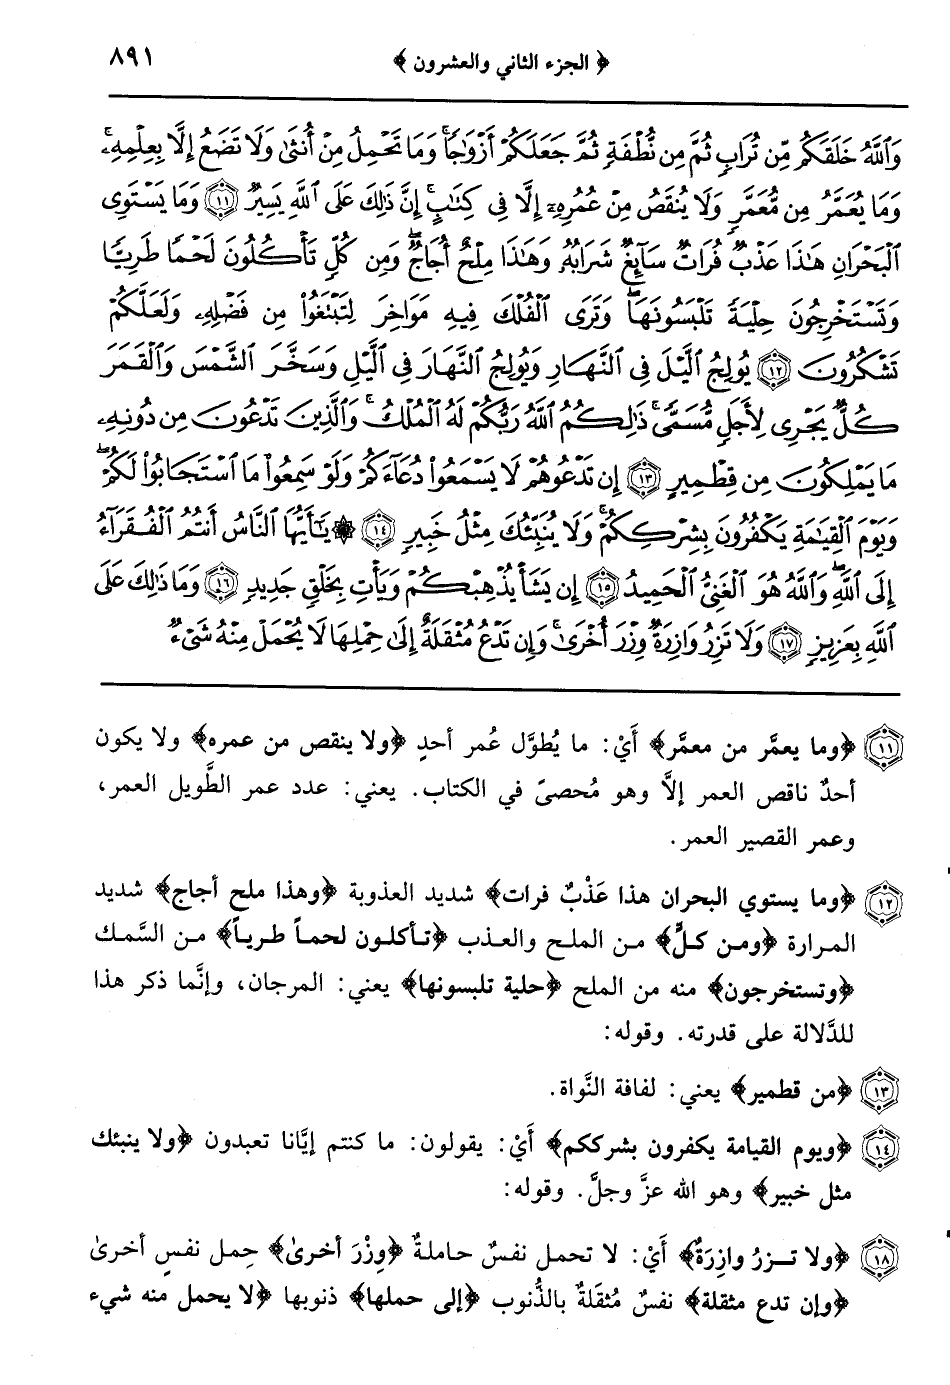 ﴿ الجزء الثاني والعشرون ﴾ ٨٩١
وَٱللَّهُ خَلَقَكُم مِّن تُرَابٍ ثُمَّ مِن نُّطْفَةٍ ثُمَّ جَعَلَكُمْ أَزْوَٰجًا ۚ وَمَا تَحْمِلُ مِنْ أُنثَىٰ وَلَا تَضَعُ إِلَّا بِعِلْمِهِۦ ۚ
وَمَا يُعَمَّرُ مِن مُّعَمَّرٍ وَلَا يُنقَصُ مِنْ عُمُرِهِۦٓ إِلَّا فِى كِتَٰبٍ ۚ إِنَّ ذَٰلِكَ عَلَى ٱللَّهِ يَسِيرٌ ۝١١ وَمَا يَسْتَوِى
ٱلْبَحْرَانِ هَٰذَا عَذْبٌ فُرَاتٌ سَآئِغٌ شَرَابُهُۥ وَهَٰذَا مِلْحٌ أُجَاجٌ ۖ وَمِن كُلٍّ تَأْكُلُونَ لَحْمًا طَرِيًّا
وَتَسْتَخْرِجُونَ حِلْيَةً تَلْبَسُونَهَا ۖ وَتَرَى ٱلْفُلْكَ فِيهِ مَوَاخِرَ لِتَبْتَغُوا۟ مِن فَضْلِهِۦ وَلَعَلَّكُمْ
تَشْكُرُونَ ۝١٢ يُولِجُ ٱلَّيْلَ فِى ٱلنَّهَارِ وَيُولِجُ ٱلنَّهَارَ فِى ٱلَّيْلِ وَسَخَّرَ ٱلشَّمْسَ وَٱلْقَمَرَ
كُلٌّ يَجْرِى لِأَجَلٍ مُّسَمًّى ۚ ذَٰلِكُمُ ٱللَّهُ رَبُّكُمْ لَهُ ٱلْمُلْكُ ۚ وَٱلَّذِينَ تَدْعُونَ مِن دُونِهِۦ
مَا يَمْلِكُونَ مِن قِطْمِيرٍ ۝١٣ إِن تَدْعُوهُمْ لَا يَسْمَعُوا۟ دُعَآءَكُمْ وَلَوْ سَمِعُوا۟ مَا ٱسْتَجَابُوا۟ لَكُمْ ۖ
وَيَوْمَ ٱلْقِيَٰمَةِ يَكْفُرُونَ بِشِرْكِكُمْ ۚ وَلَا يُنَبِّئُكَ مِثْلُ خَبِيرٍ ۝١٤ ۞ يَٰٓأَيُّهَا ٱلنَّاسُ أَنتُمُ ٱلْفُقَرَآءُ
إِلَى ٱللَّهِ ۖ وَٱللَّهُ هُوَ ٱلْغَنِىُّ ٱلْحَمِيدُ ۝١٥ إِن يَشَأْ يُذْهِبْكُمْ وَيَأْتِ بِخَلْقٍ جَدِيدٍ ۝١٦ وَمَا ذَٰلِكَ عَلَى
ٱللَّهِ بِعَزِيزٍ ۝١٧ وَلَا تَزِرُ وَازِرَةٌ وِزْرَ أُخْرَىٰ ۚ وَإِن تَدْعُ مُثْقَلَةٌ إِلَىٰ حِمْلِهَا لَا يُحْمَلْ مِنْهُ شَىْءٌ
١١ ﴿وما يعمَّر من معمَّر﴾ أَيْ: ما يُطوَّل عُمر أحدٍ ﴿ولا ينقص من عمره﴾ ولا يكون
أحدٌ ناقص العمر إلَّا وهو مُحصىً في الكتاب. يعني: عدد عمر الطَّويل العمر،
وعمر القصير العمر.
١٢ ﴿وما يستوي البحران هذا عَذْبٌ فرات﴾ شديد العذوبة ﴿وهذا ملح أجاج﴾ شديد
المرارة ﴿ومن كلٍّ﴾ من الملح والعذب ﴿تأكلون لحماً طرياً﴾ من السَّمك
﴿وتستخرجون﴾ منه من الملح ﴿حلية تلبسونها﴾ يعني: المرجان، وإنَّما ذكر هذا
للدَّلالة على قدرته. وقوله:
١٣ ﴿من قطمير﴾ يعني: لفافة النَّواة.
١٤ ﴿ويوم القيامة يكفرون بشرككم﴾ أَيْ: يقولون: ما كنتم إيَّانا تعبدون ﴿ولا ينبئك
مثل خبير﴾ وهو الله عزَّ وجلَّ. وقوله:
١٨ ﴿ولا تـزرُ وازِرَةٌ﴾ أَيْ: لا تحمل نفسٌ حاملةٌ ﴿وِزْرَ أخرىٰ﴾ حِمل نفسٍ أخرىٰ
﴿وإن تدع مثقلة﴾ نفسٌ مُثقَلةٌ بالذُّنوب ﴿إلى حملها﴾ ذنوبها ﴿لا يحمل منه شيء